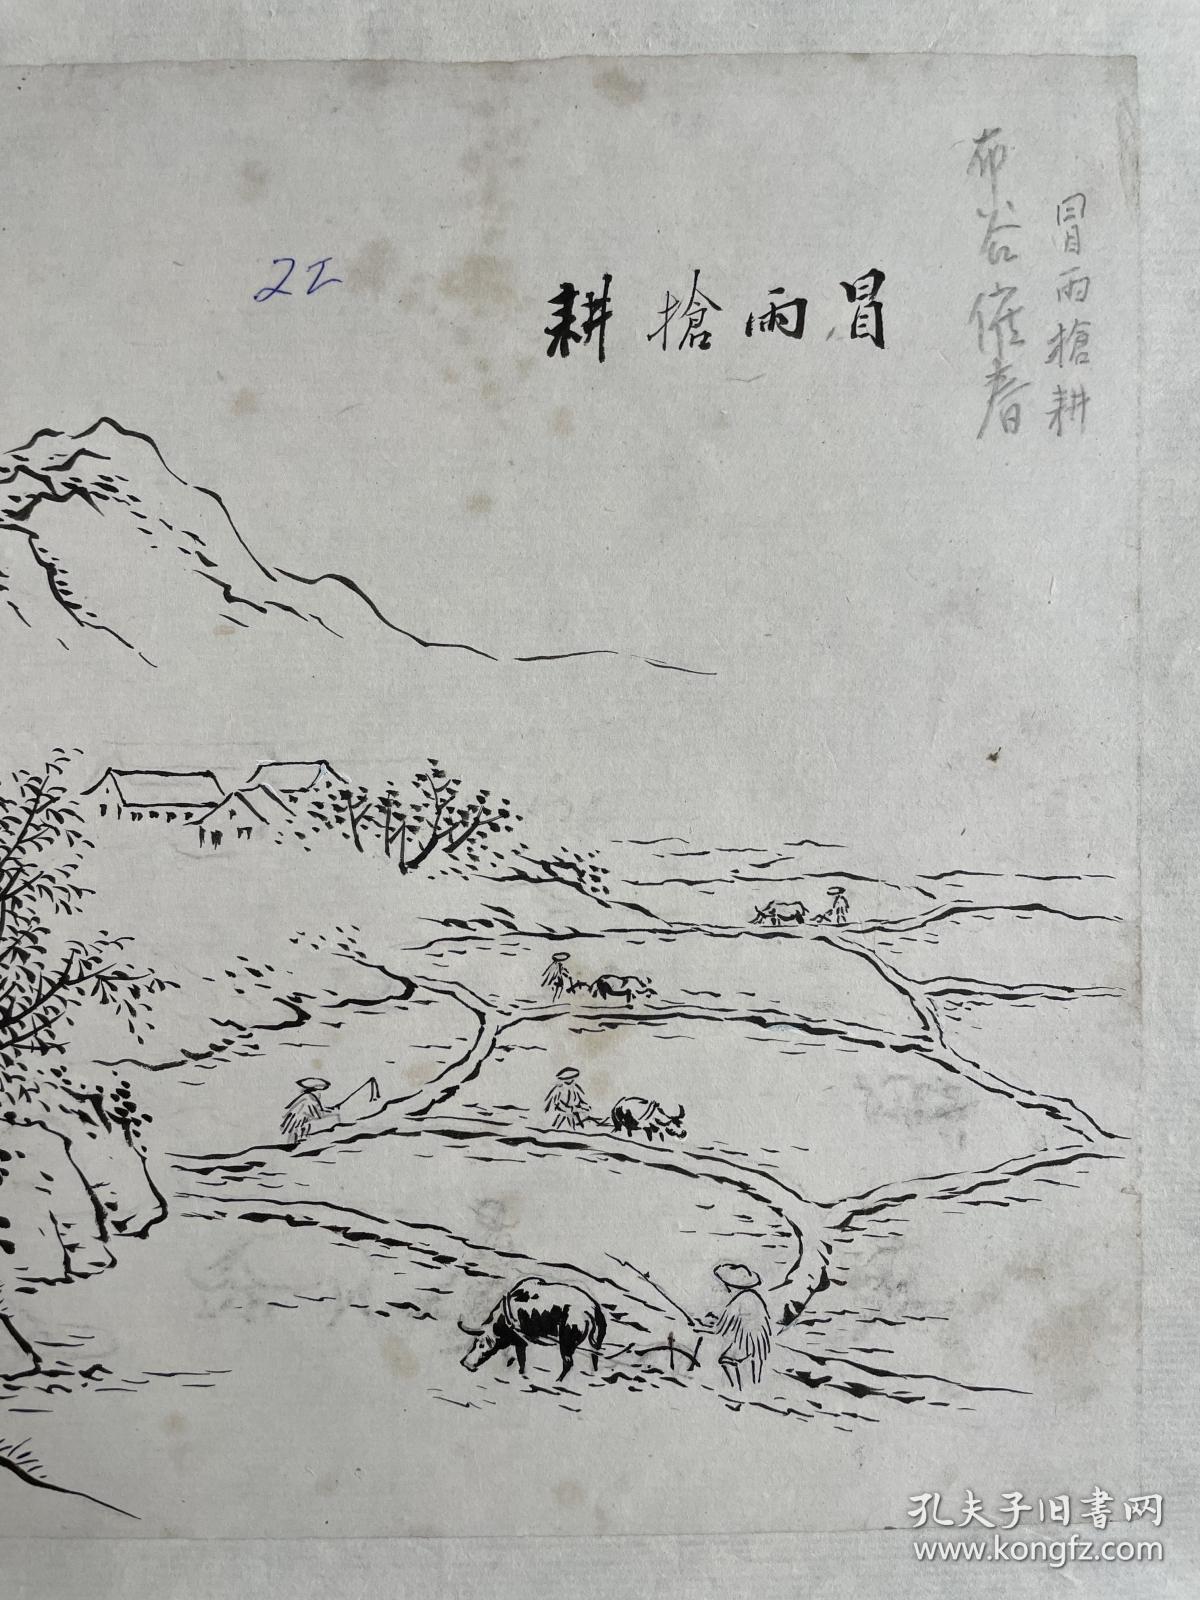 冒雨搶耕
布谷催春
冒雨搶耕
孔夫子旧書网
www.kongfz.com